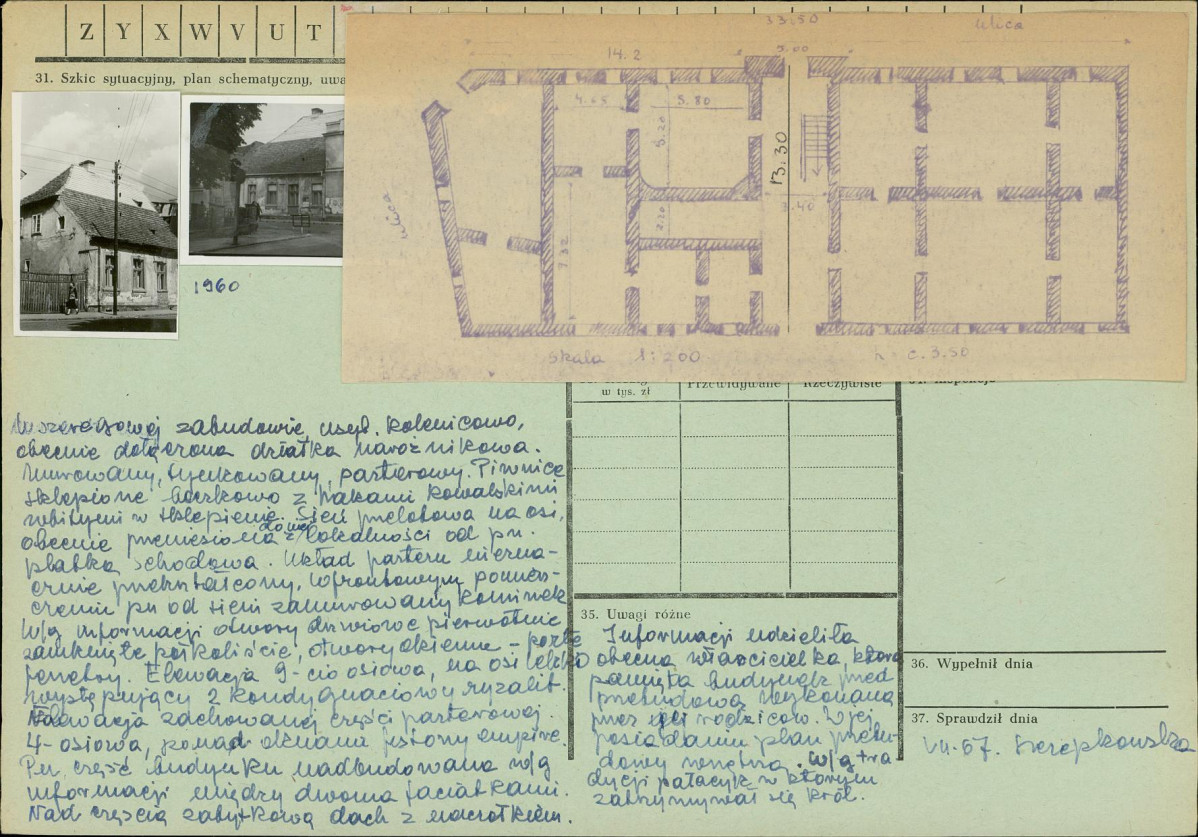 Z Y X W V U T
31. Szkic sytuacyjny, plan schematyczny, uwa
33.50
ulica
14.2
5.00
4.65
5.80
5.20
13.30
3.40
2.20
7.32
ulica
skala 1:200
h = c. 3.50
1960
w tys. zł
Przewidywane
Rzeczywiste
W szeregowej zabudowie, usyt. kalenicowo,
obecnie dołączona działka narożnikowa.
Murowany, tynkowany, parterowy. Piwnice
sklepione beczkowo z hakami kowalskimi
wbitymi w sklepienie. Sień przelotowa na osi,
obecnie przeniesiona do lokalności od pn.
płatką schodowa. Układ parteru nieznacznie
przekształcony, w frontowym pomieszczeniu
pn od sieni zamurowany kominek
W/g informacji otwory drzwiowe pierwotnie
zamknięte półkoliście, otwory okienne - porte
fenetry. Elewacja 9-cio osiowa, na osi lekko
występujący 2 kondygnaciowy ryzalit.
Elewacja zachowanej części parterowej
4-osiowa, ponad oknami festony empire.
Pn. część budynku nadbudowana w/g
informacji między dwoma faciatkami.
Nad częścią zabytkową dach z naczółkiem.
35. Uwagi różne
Informacji udzieliła
obecna właścicielka, która
pamięta budynek przed
przebudową wykonaną
przez jej rodziców. W jej
posiadaniu plan przebudowy
wnętrza. W/g tradycji
pałacyk w którym
zatrzymywał się król.
36. Wypełnił dnia
37. Sprawdził dnia
VII.67. Szczepkowska